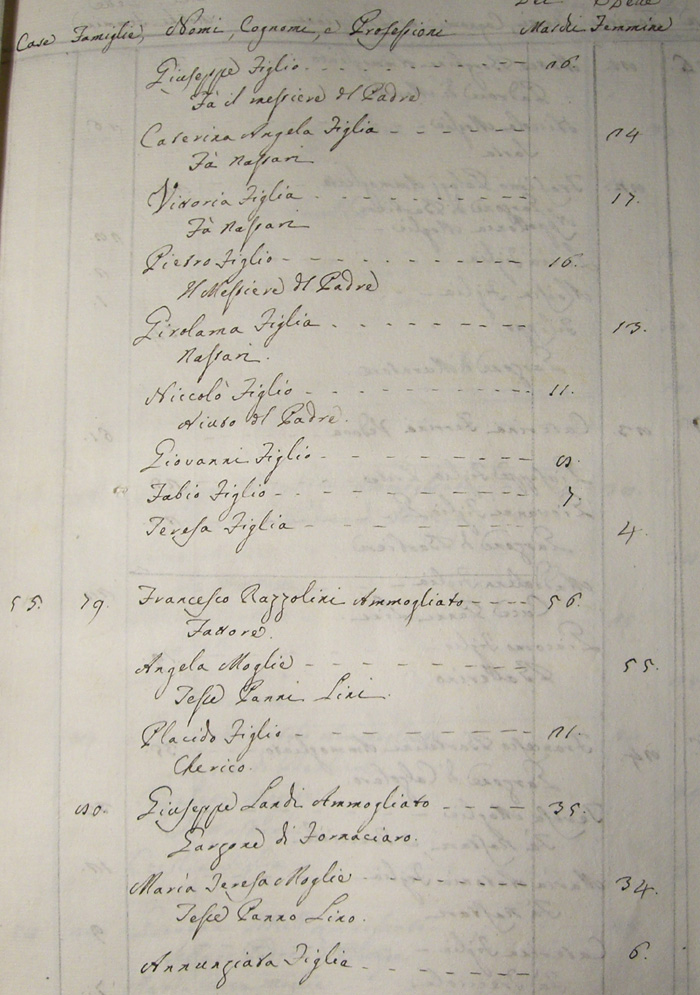 Dei Delle
Case Famiglie, Nomi, Cognomi, e Professioni Maschi Femmine
Giuseppe Figlio 26.
Fà il mestiere del Padre
Caterina Angela Figlia 24
Fà Nastari
Vittoria Figlia 17.
Fà Nastari
Pietro Figlio 16.
Il Mestiere del Padre
Girolama Figlia 13.
Nastari.
Niccolò Figlio 11.
Aiuto del Padre.
Giovanni Figlio 8.
Fabio Figlio 7.
Teresa Figlia 4.
55. 79. Francesco Razzolini Ammogliato 56.
Fattore.
Angela Moglie 55.
Tesse Panni Lini.
Placido Figlio 21.
Cherico.
80. Giuseppe Landi Ammogliato 35.
Garzone di Fornaciaro.
Maria Teresa Moglie 34.
Tesse Panno Lino.
Annunziata Figlia 6.